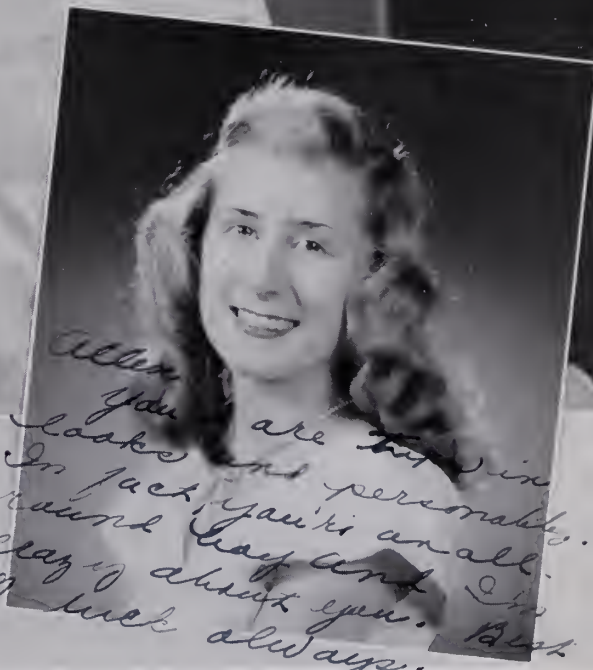 Allen
you are tops in
looks and personality.
In fact, you're an all-
round boy and I'm
crazy about you. Best
luck always.